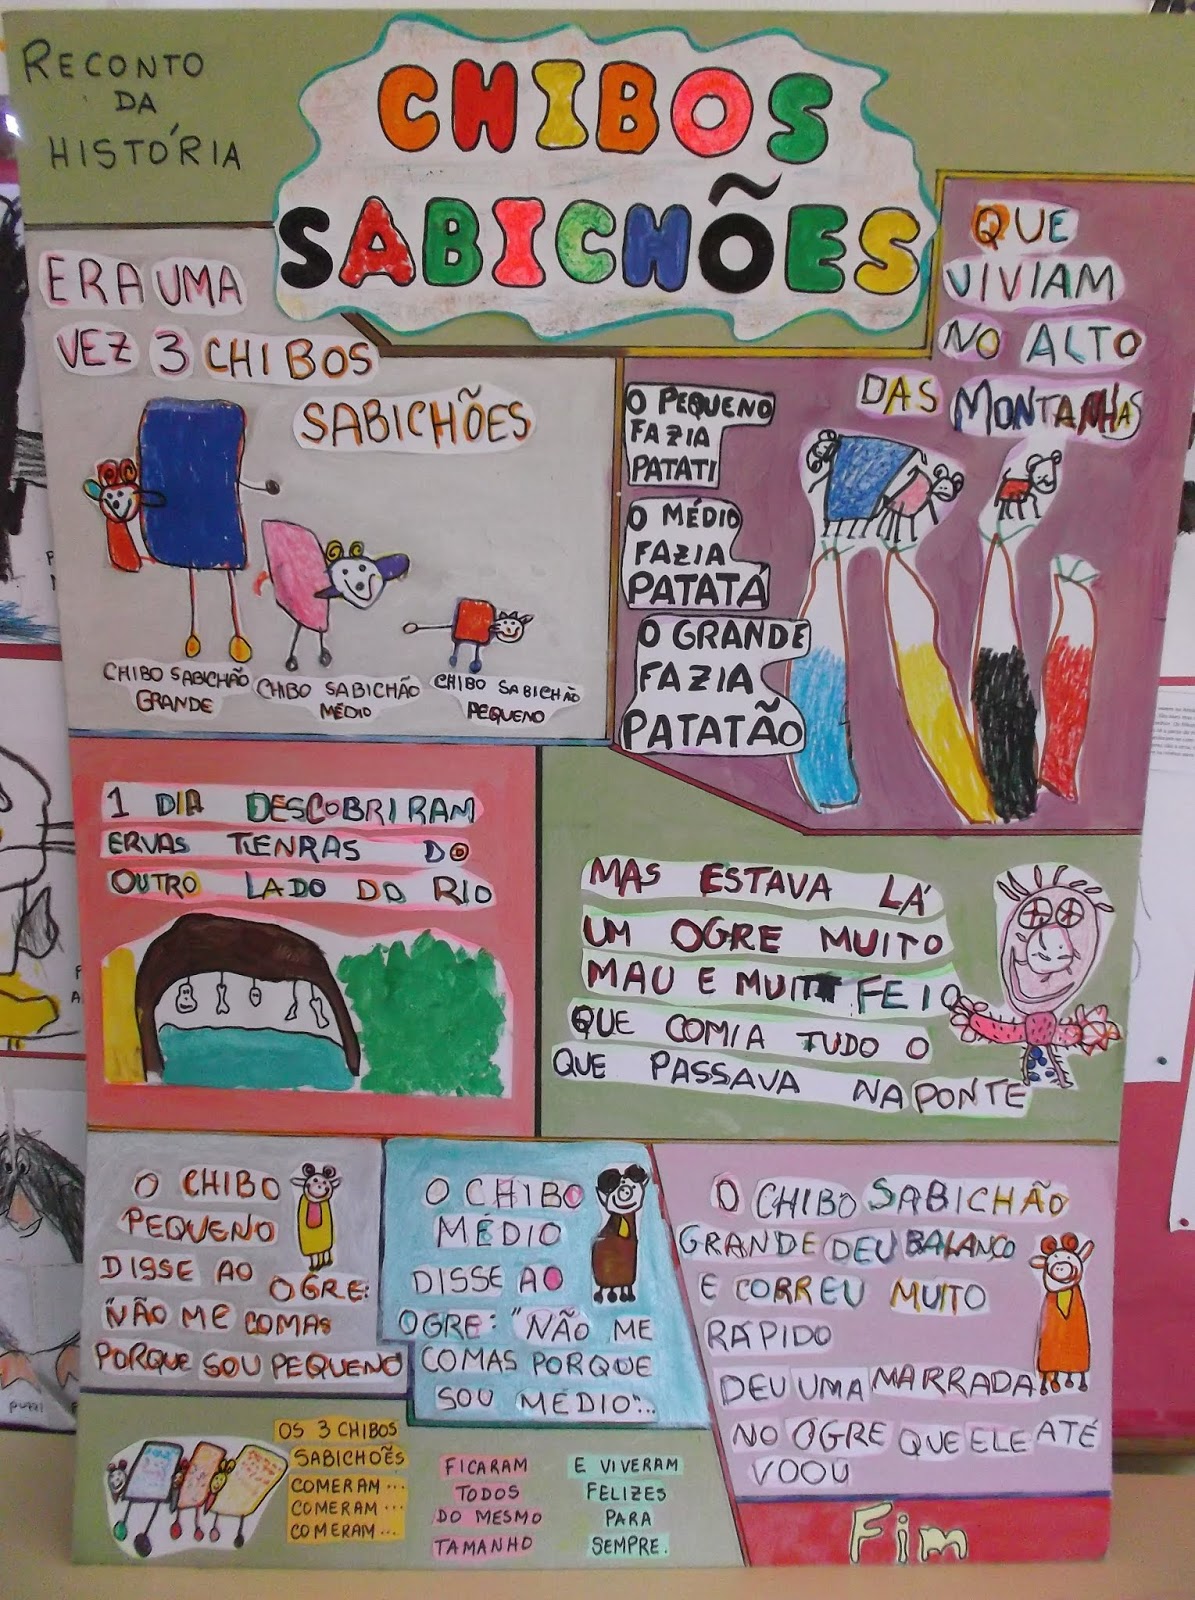 RECONTO
DA
HISTÓRIA
CHIBOS
SABICHÕES
ERA UMA
VEZ 3 CHIBOS
SABICHÕES
CHIBO SABICHÃO
GRANDE
CHIBO SABICHÃO
MÉDIO
CHIBO SABICHÃO
PEQUENO
QUE
VIVIAM
NO ALTO
DAS MONTANHAS
O PEQUENO
FAZIA
PATATI
O MÉDIO
FAZIA
PATATÁ
O GRANDE
FAZIA
PATATÃO
1 DIA DESCOBRIRAM
ERVAS TENRAS DO
OUTRO LADO DO RIO
MAS ESTAVA LÁ
UM OGRE MUITO
MAU E MUITO FEIO
QUE COMIA TUDO O
QUE PASSAVA NA PONTE
O CHIBO
PEQUENO
DISSE AO
OGRE:
"NÃO ME COMAS
PORQUE SOU PEQUENO
O CHIBO
MÉDIO
DISSE AO
OGRE: "NÃO ME
COMAS PORQUE
SOU MÉDIO"...
O CHIBO SABICHÃO
GRANDE DEU BALANÇO
E CORREU MUITO
RÁPIDO
DEU UMA MARRADA
NO OGRE QUE ELE ATÉ
VOOU
OS 3 CHIBOS
SABICHÕES
COMERAM ...
COMERAM ...
COMERAM ...
FICARAM
TODOS
DO MESMO
TAMANHO
E VIVERAM
FELIZES
PARA
SEMPRE.
Fim